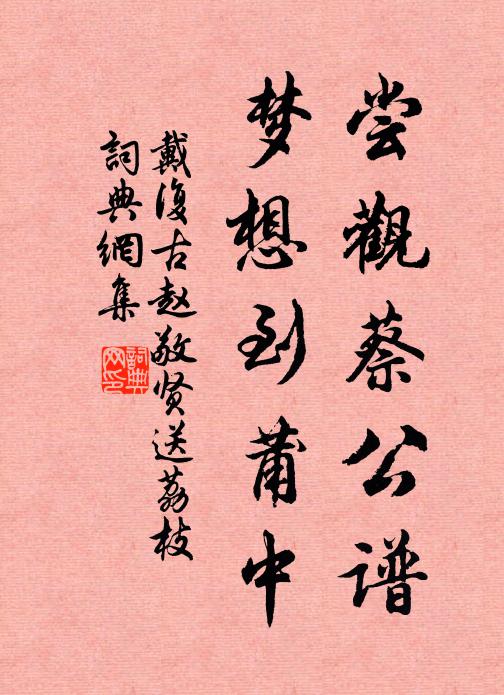 尝觀蔡公谱
梦想到莆中
戴復古赵敬贤送荔枝
詞典網集
詞典網印